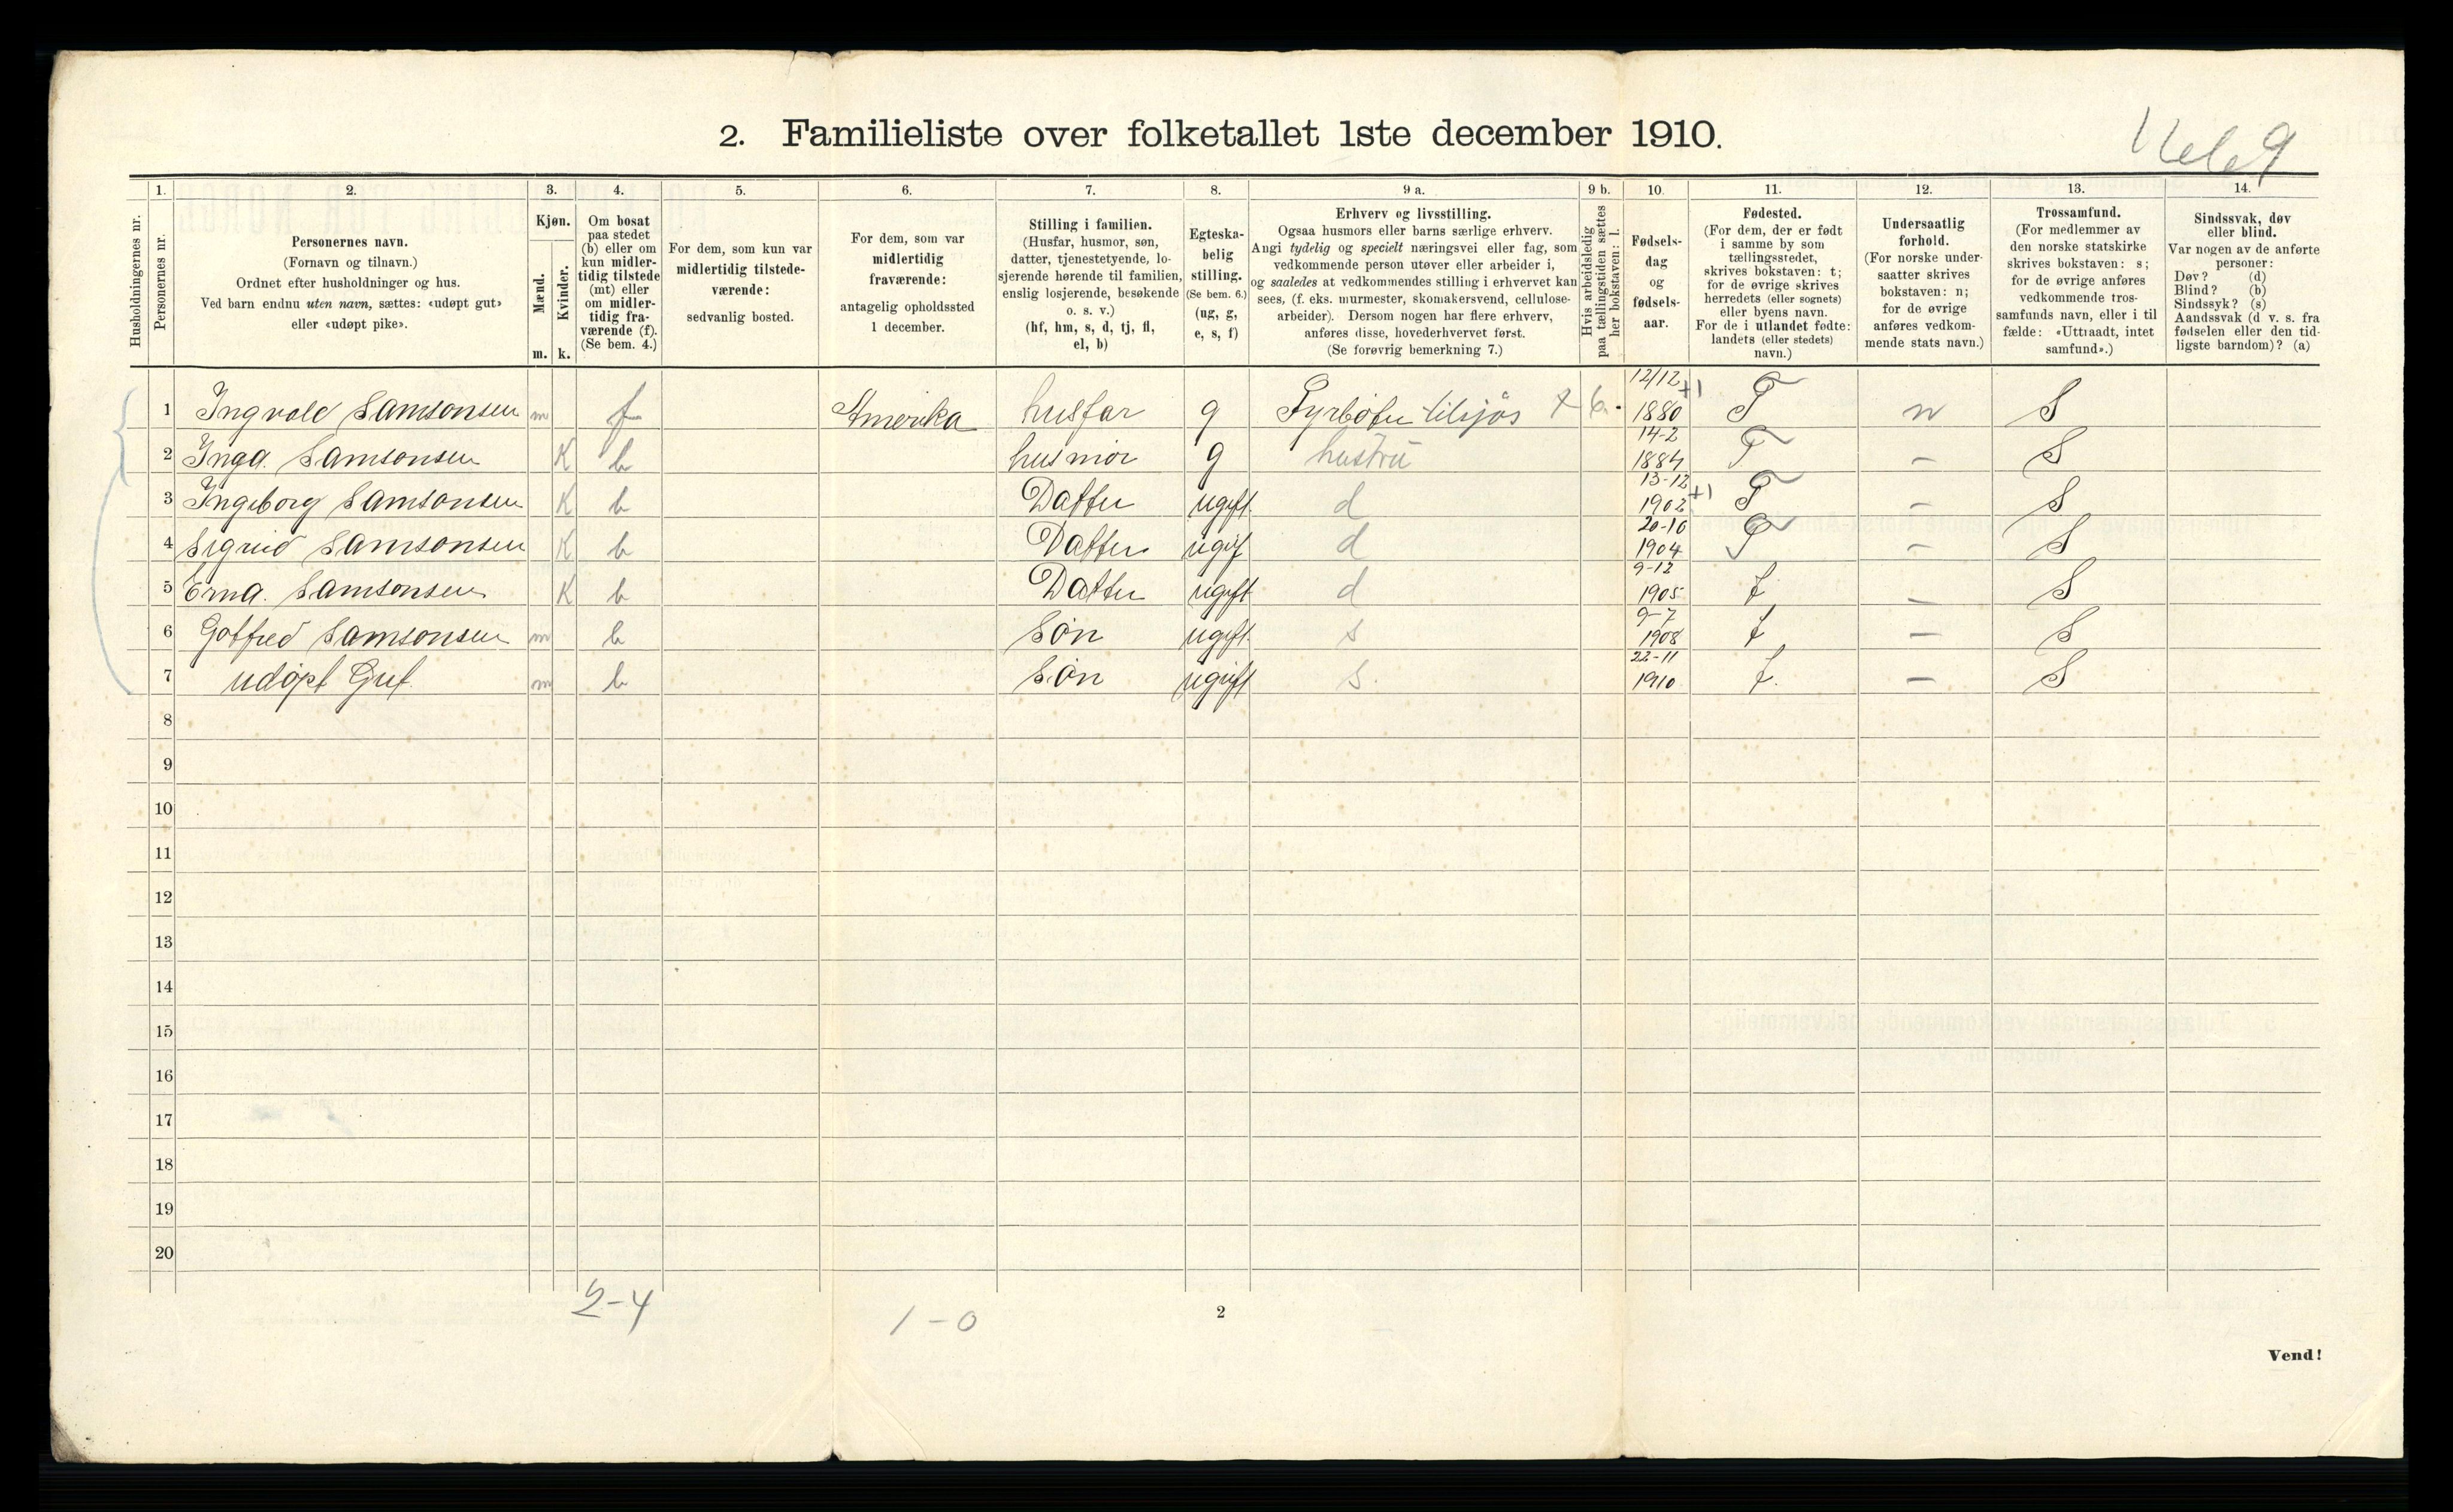 2. Familieliste over folketallet 1ste december 1910.
Husholdningernes nr.
1.
Personernes nr.
2.
Personernes navn.
(Fornavn og tilnavn.)
Ordnet efter husholdninger og hus.
Ved barn endnu uten navn, sættes: «udøpt gut»
eller «udøpt pike».
3.
Kjøn.
Mænd.
Kvinder.
m. k.
4.
Om bosat
paa stedet
(b) eller om
kun midler-
tidig tilstede
(mt) eller
om midler-
tidig fra-
værende (f).
(Se bem. 4.)
5.
For dem, som kun var
midlertidig tilstede-
værende:
sedvanlig bosted.
6.
For dem, som var
midlertidig
fraværende:
antagelig opholdssted
1 december.
7.
Stilling i familien.
(Husfar, husmor, søn,
datter, tjenestetyende, lo-
sjerende hørende til familien,
enslig losjerende, besøkende
o. s. v.)
(hf, hm, s, d, tj, fl,
el, b)
8.
Egteska-
belig
stilling.
(Se bem. 6.)
(ug, g,
e, s, f)
9 a.
Erhverv og livsstilling.
Ogsaa husmors eller barns særlige erhverv.
Angi tydelig og specielt næringsvei eller fag, som
vedkommende person utøver eller arbeider i,
og saaledes at vedkommendes stilling i erhvervet kan
sees, (f. eks. murmester, skomakersvend, cellulose-
arbeider). Dersom nogen har flere erhverv,
anføres disse, hovederhvervet først.
(Se forøvrig bemerkning 7.)
9 b.
Hvis arbeidsledig
paa tællingstiden sættes
her bokstaven: l.
10.
Fødsels-
dag
og
fødsels-
aar.
11.
Fødested.
(For dem, der er født
i samme by som
tællingsstedet,
skrives bokstaven: t;
for de øvrige skrives
herredets (eller sognets)
eller byens navn.
For de i utlandet fødte:
landets (eller stedets)
navn.)
12.
Undersaatlig
forhold.
(For norske under-
saatter skrives
bokstaven: n;
for de øvrige
anføres vedkom-
mende stats navn.)
13.
Trossamfund.
(For medlemmer av
den norske statskirke
skrives bokstaven: s;
for de øvrige anføres
vedkommende tros-
samfunds navn, eller i til
fælde: «Uttraadt, intet
samfund».)
14.
Sindssvak, døv
eller blind.
Var nogen av de anførte
personer:
Døv? (d)
Blind? (b)
Sindssyk? (s)
Aandssvak (d v. s. fra
fødselen eller den tid-
ligste barndom)? (a)
1 Ingvald Samsonsen m f Amerika husfar g Fyrbøter tilsjøs 12/12 1880 +1 T n S
2 Inga. Samsonsen K b husmor g hustru 14-2 1884 T – S
3 Ingeborg Samsonsen K b Datter ugift d 13-12 1902 +1 T – S
4 Sigrid Samsonsen K b Datter ugif d 20-10 1904 T – S
5 Erna. Samsonsen K b Datter ugift d 9-12 1905 t – S
6 Gotfred Samsonsen m b Søn ugift s 9-7 1908 t – S
7 udøpt Gut. m b Søn ugift s. 22-11 1910 t. – S
8
9
10
11
12
13
14
15
16
17
18
19
20
2-4
1-0
2
Vend!